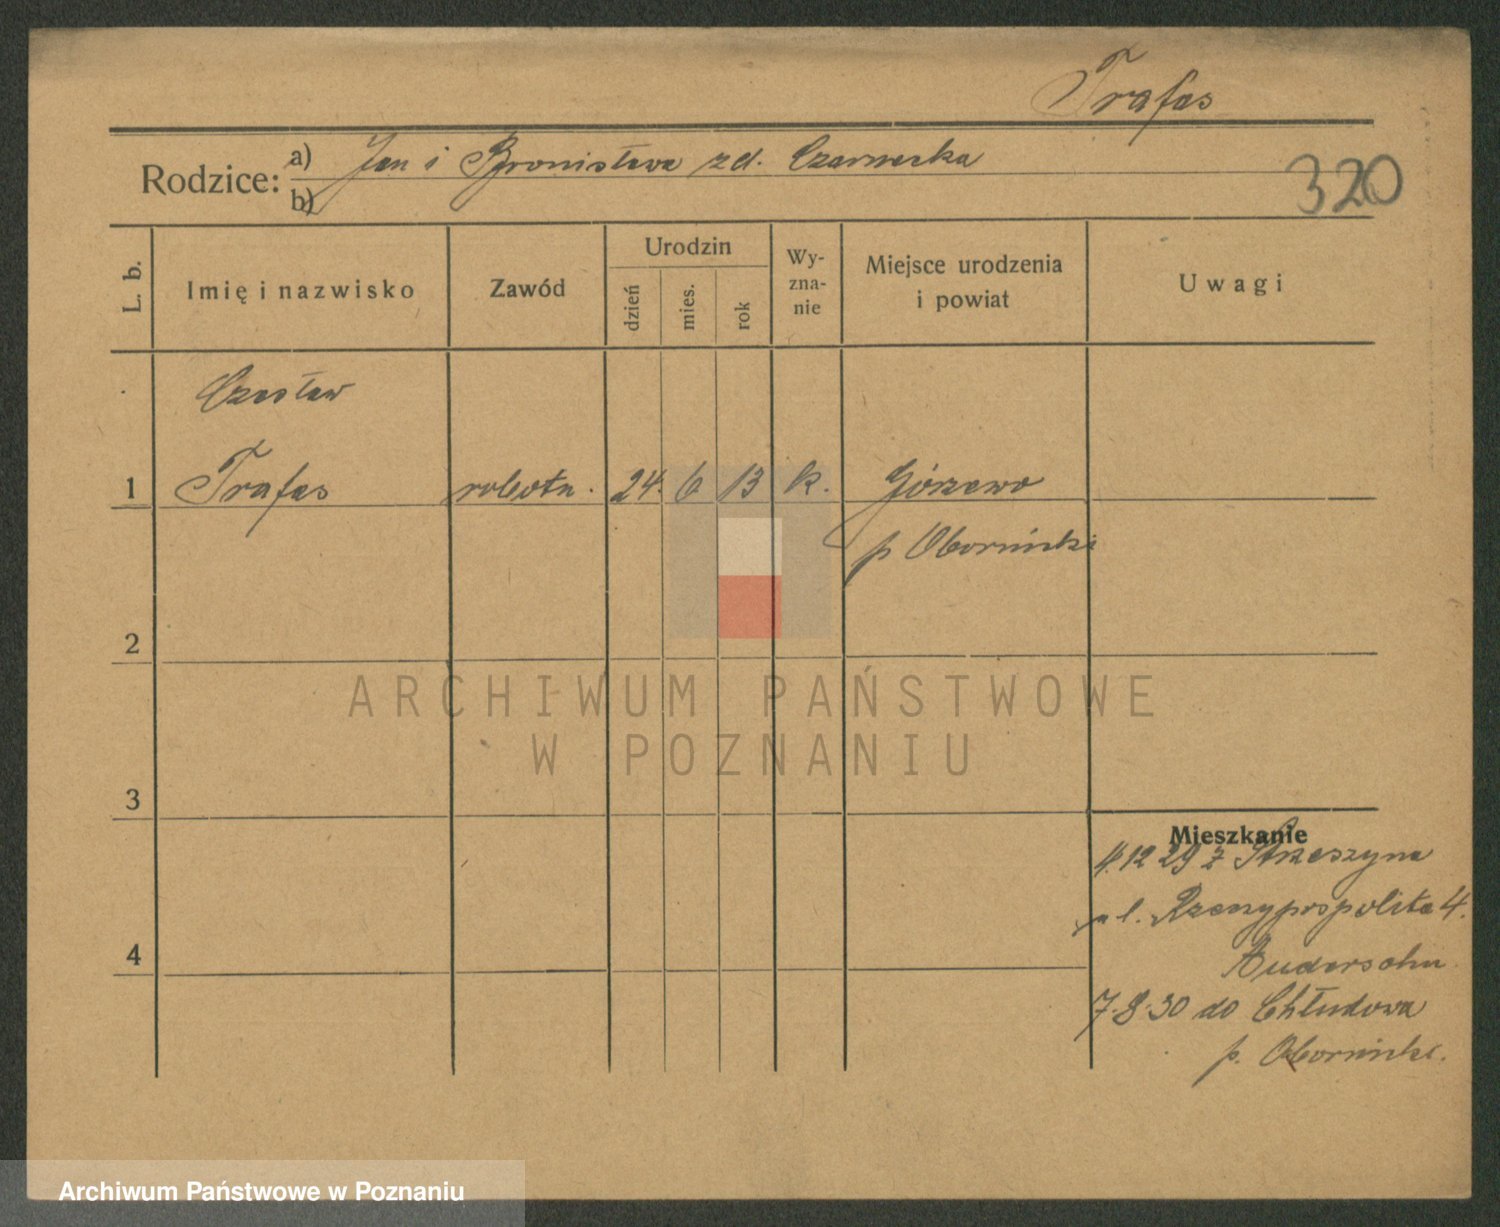 Trafas
Rodzice: a) Jan i Bronisława zd. Czarnecka
b)
320
L. b.
Imię i nazwisko
Zawód
Urodzin
dzień
mies.
rok
Wy-
zna-
nie
Miejsce urodzenia
i powiat
Uwagi
Czesław
1 Trafas robotn. 24. 6 13 k. Górzewo
p Obornicki
2
ARCHIWUM PAŃSTWOWE
W POZNANIU
3
Mieszkanie
4.12 29 z Strzeszyna
ul. Rzeczypospolita 4.
4
Andersohn
7.8.30 do Chłudowa
p. Obornicki.
Archiwum Państwowe w Poznaniu